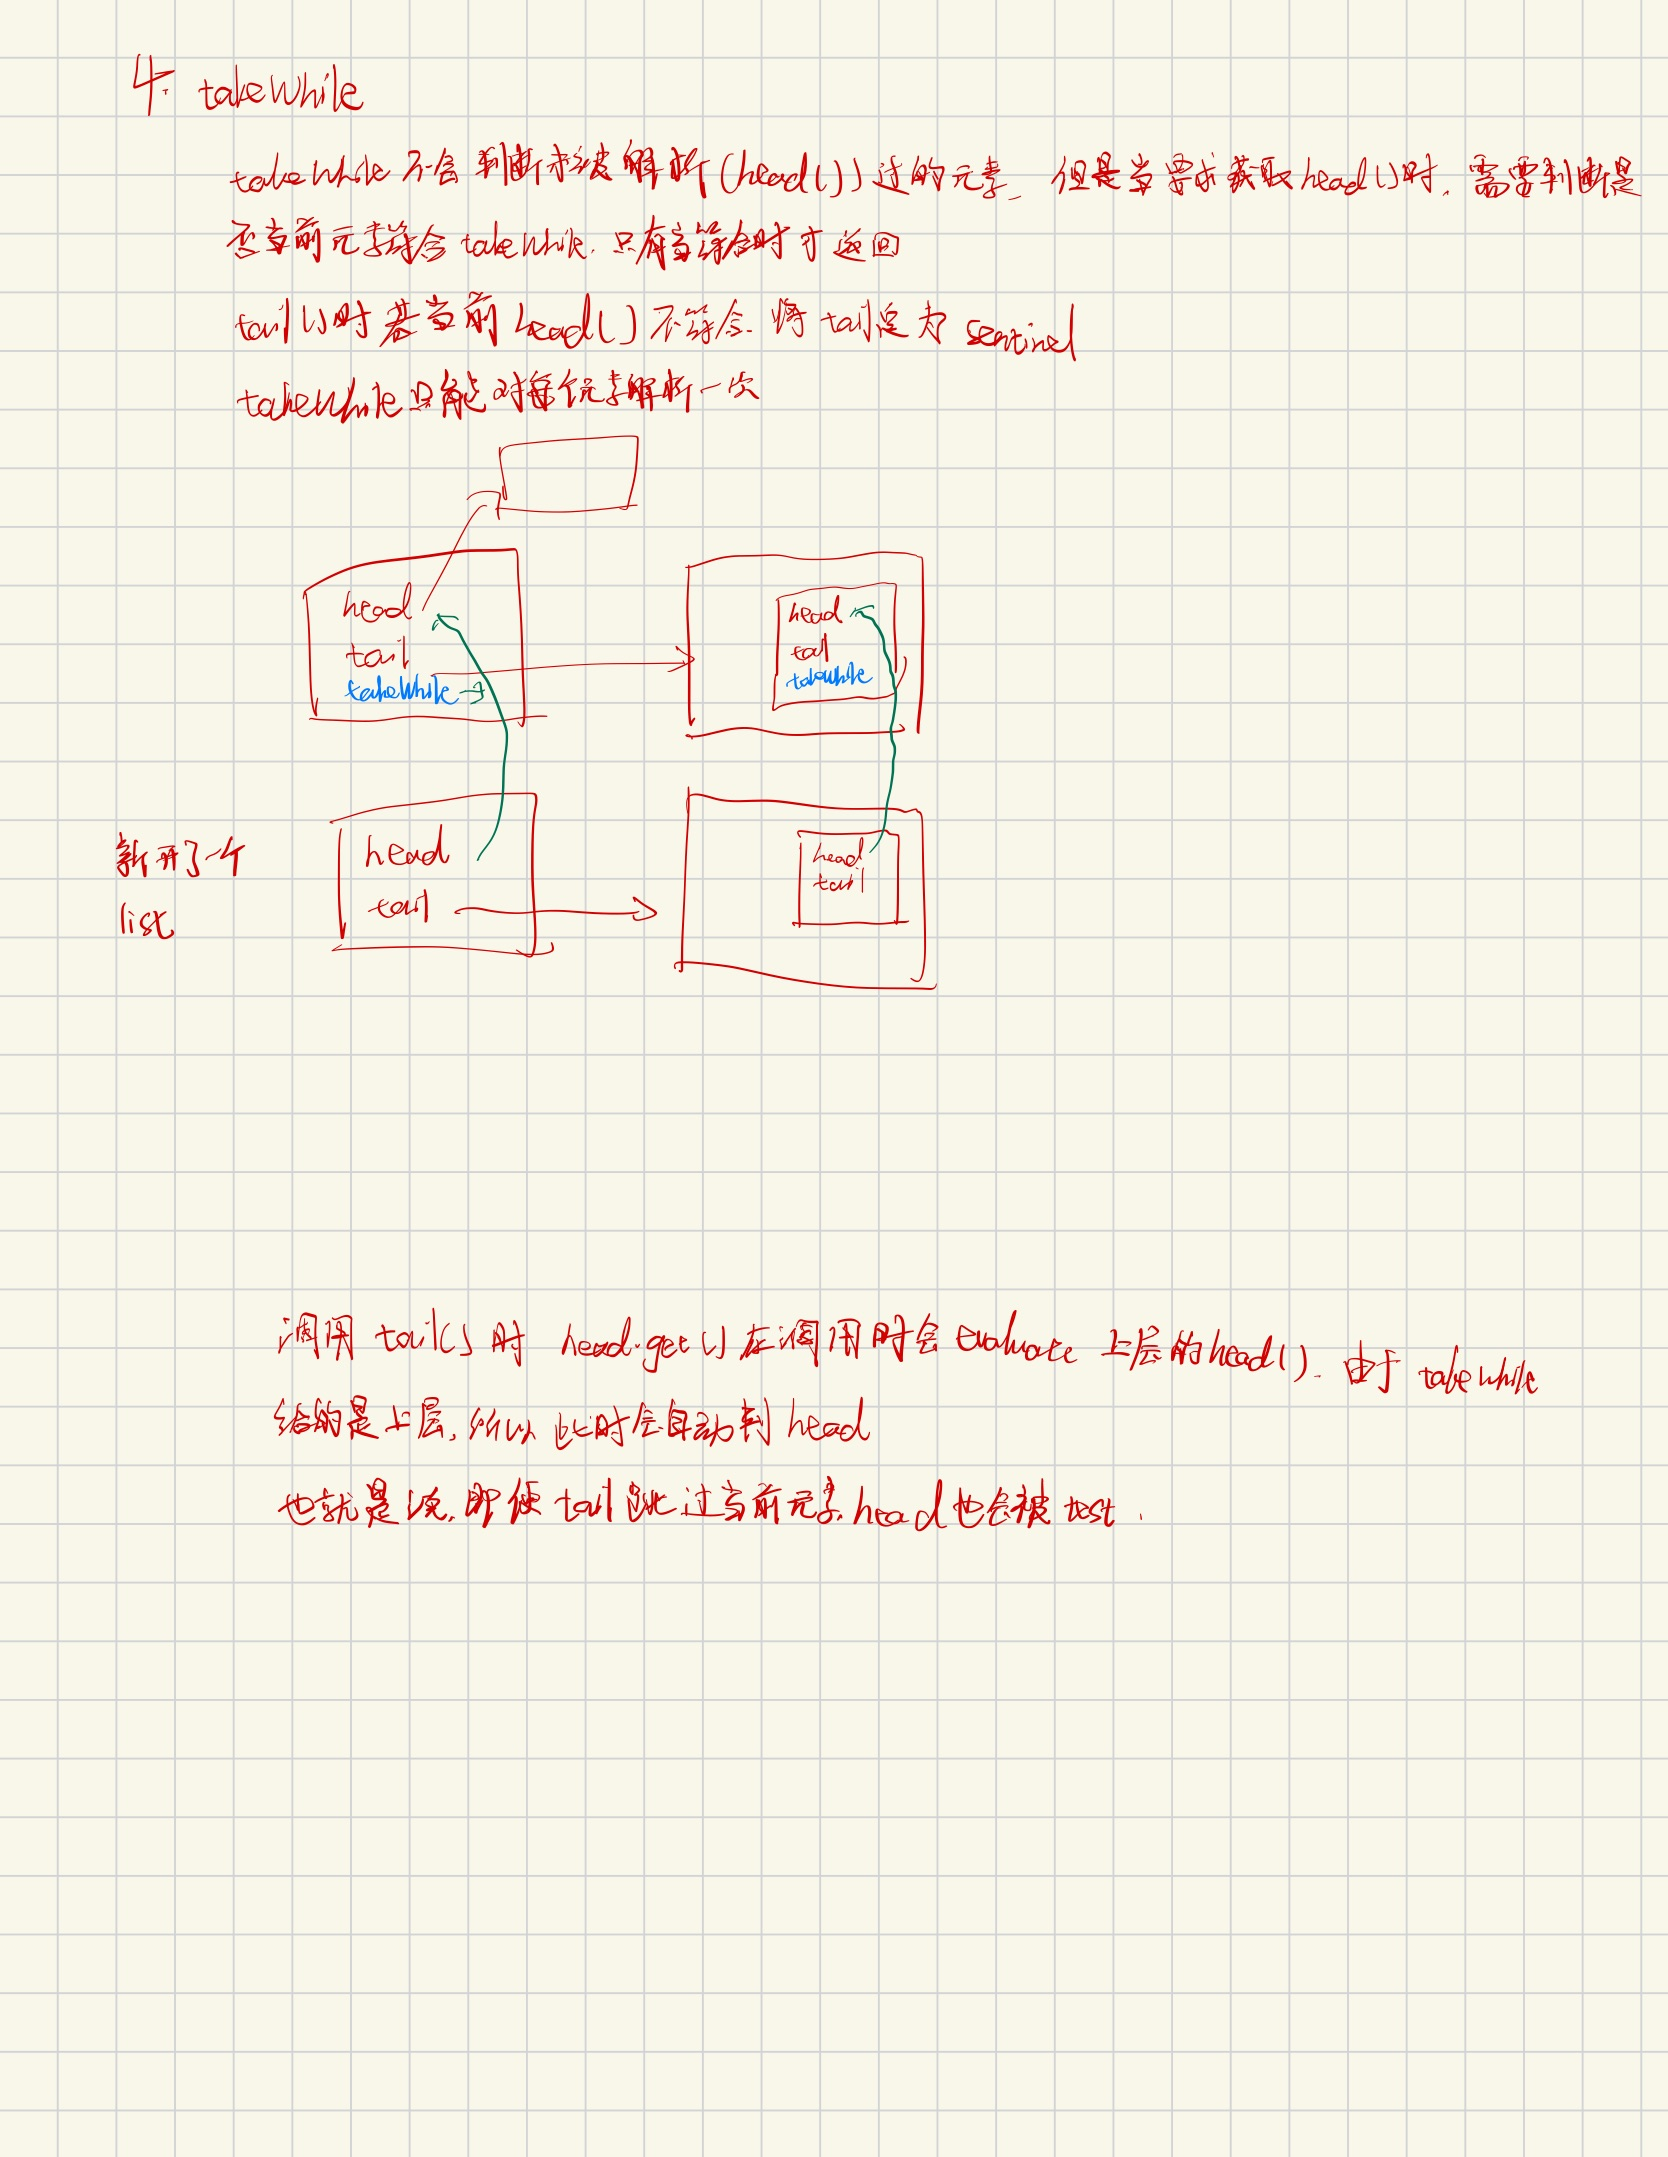 4. takeWhile
takeWhile 不会判断未被解析(head())过的元素, 但是当要求获取head()时, 需要判断是
否当前元素符合takeWhile, 只有当符合时才返回
tail()时若当前head()不符合, 将tail定为 sentinel
takeWhile只能对每个元素解析一次
head
tail
takeWhile
head
tail
takeWhile
新开了一个
list
head
tail
head
tail
调用 tail() 时 head.get() 在调用时会 evaluate 上层的head(). 由于 takeWhile
给的是上层, 所以此时会自动到 head
也就是说, 即便 tail 跳过当前元素, head也会被 test.